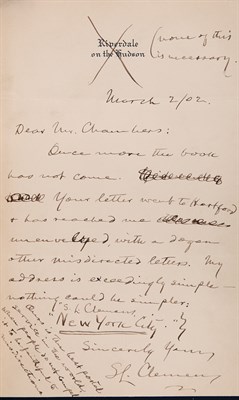 Riverdale
on the Hudson
(none of this
is necessary.
March 2/02.
Dear Mr. Chambers:
Once more the book
has not come.
Your letter went to Hartford
& has reached me
unenveloped, with a dozen
other misdirected letters. My
address is exceedingly simple—
nothing could be simpler:
"S. L. Clemens,
New York City."
Sincerely Yours,
SL. Clemens
is the best postal
service in the world
people do not